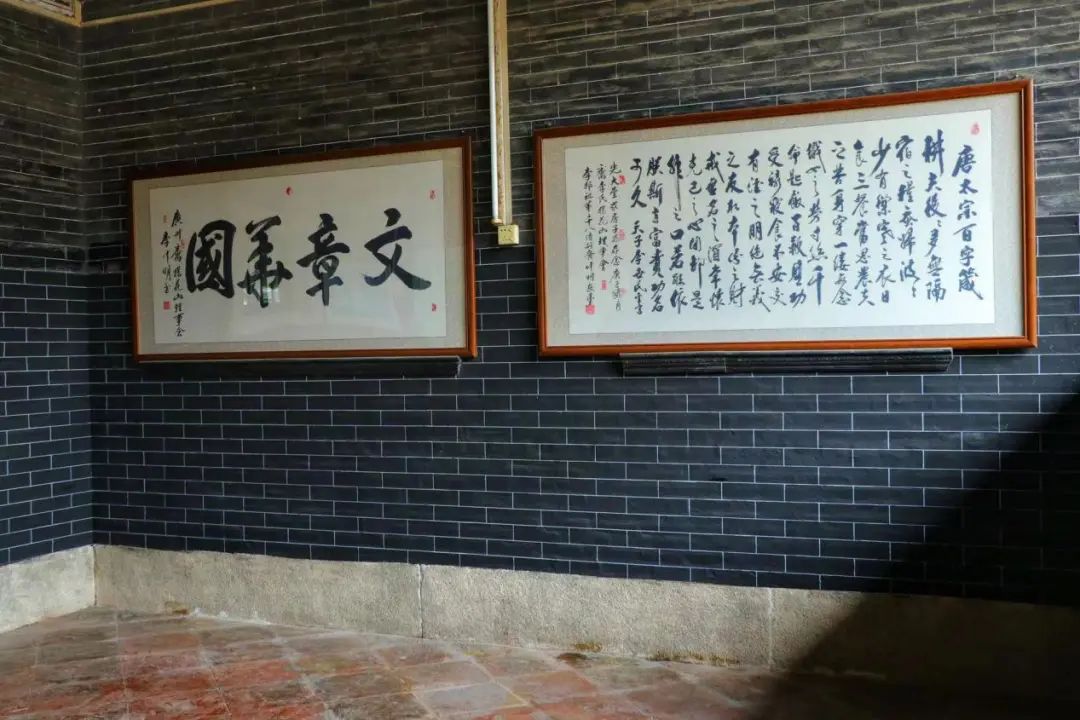 文章華國
唐太宗百字箴
耕夫役役多無隔
宿之糧蠶婦波波
少有禦寒之衣日
食三餐當思農夫
之苦身穿一縷每念
織女之勞寸絲千
命匙飯百鞭無功
受祿寢食不安交
有德之朋絕無義
之友取本分之財
戒無名之酒常懷
克己之心閉卻是
非之口若能依
朕斯言富貴功名
可久 天子李世民